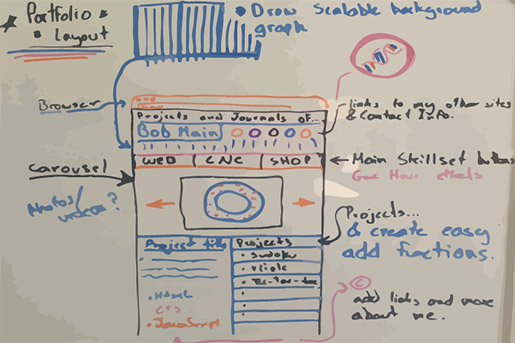 Portfolio
Layout
Draw Scalable background
graph
Browser
Projects and Journals of...
Bob Main
links to my other sites
& Contact Info.
WEB CNC SHOP
Main Skillset buttons
Carousel
Photos/
videos?
Projects...
& create easy
add functions.
Project title
Projects
sudoku
Tic-Tac-toe
Html
CSS
JavaScript
C
add links and more
about me.